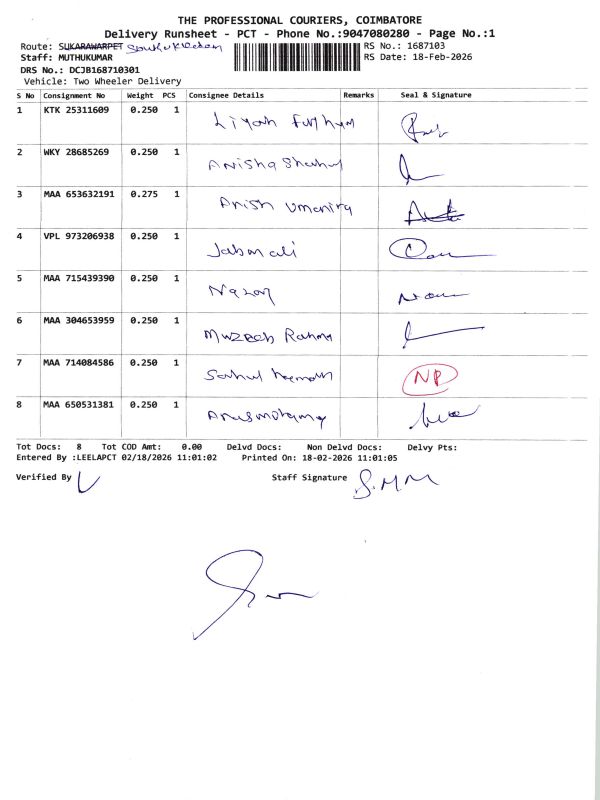 THE PROFESSIONAL COURIERS, COIMBATORE
Delivery Runsheet - PCT - Phone No.:9047080280 - Page No.:1
Route: SUKARAWARPET
RS No.: 1687103
Staff: MUTHUKUMAR
RS Date: 18-Feb-2026
DRS No.: DCJB168710301
Vehicle: Two Wheeler Delivery
S No Consignment No Weight PCS Consignee Details Remarks Seal & Signature
1 KTK 25311609 0.250 1 Liyah
2 WKY 28685269 0.250 1 Anisha
3 MAA 653632191 0.275 1 Anish
4 VPL 973206938 0.250 1 Jabmali
5 MAA 715439390 0.250 1
6 MAA 304653959 0.250 1 Rahma
7 MAA 714084586 0.250 1 NP
8 MAA 650531381 0.250 1
Tot Docs: 8 Tot COD Amt: 0.00 Delvd Docs: Non Delvd Docs: Delvy Pts:
Entered By :LEELAPCT 02/18/2026 11:01:02 Printed On: 18-02-2026 11:01:05
Verified By Staff Signature S.MM